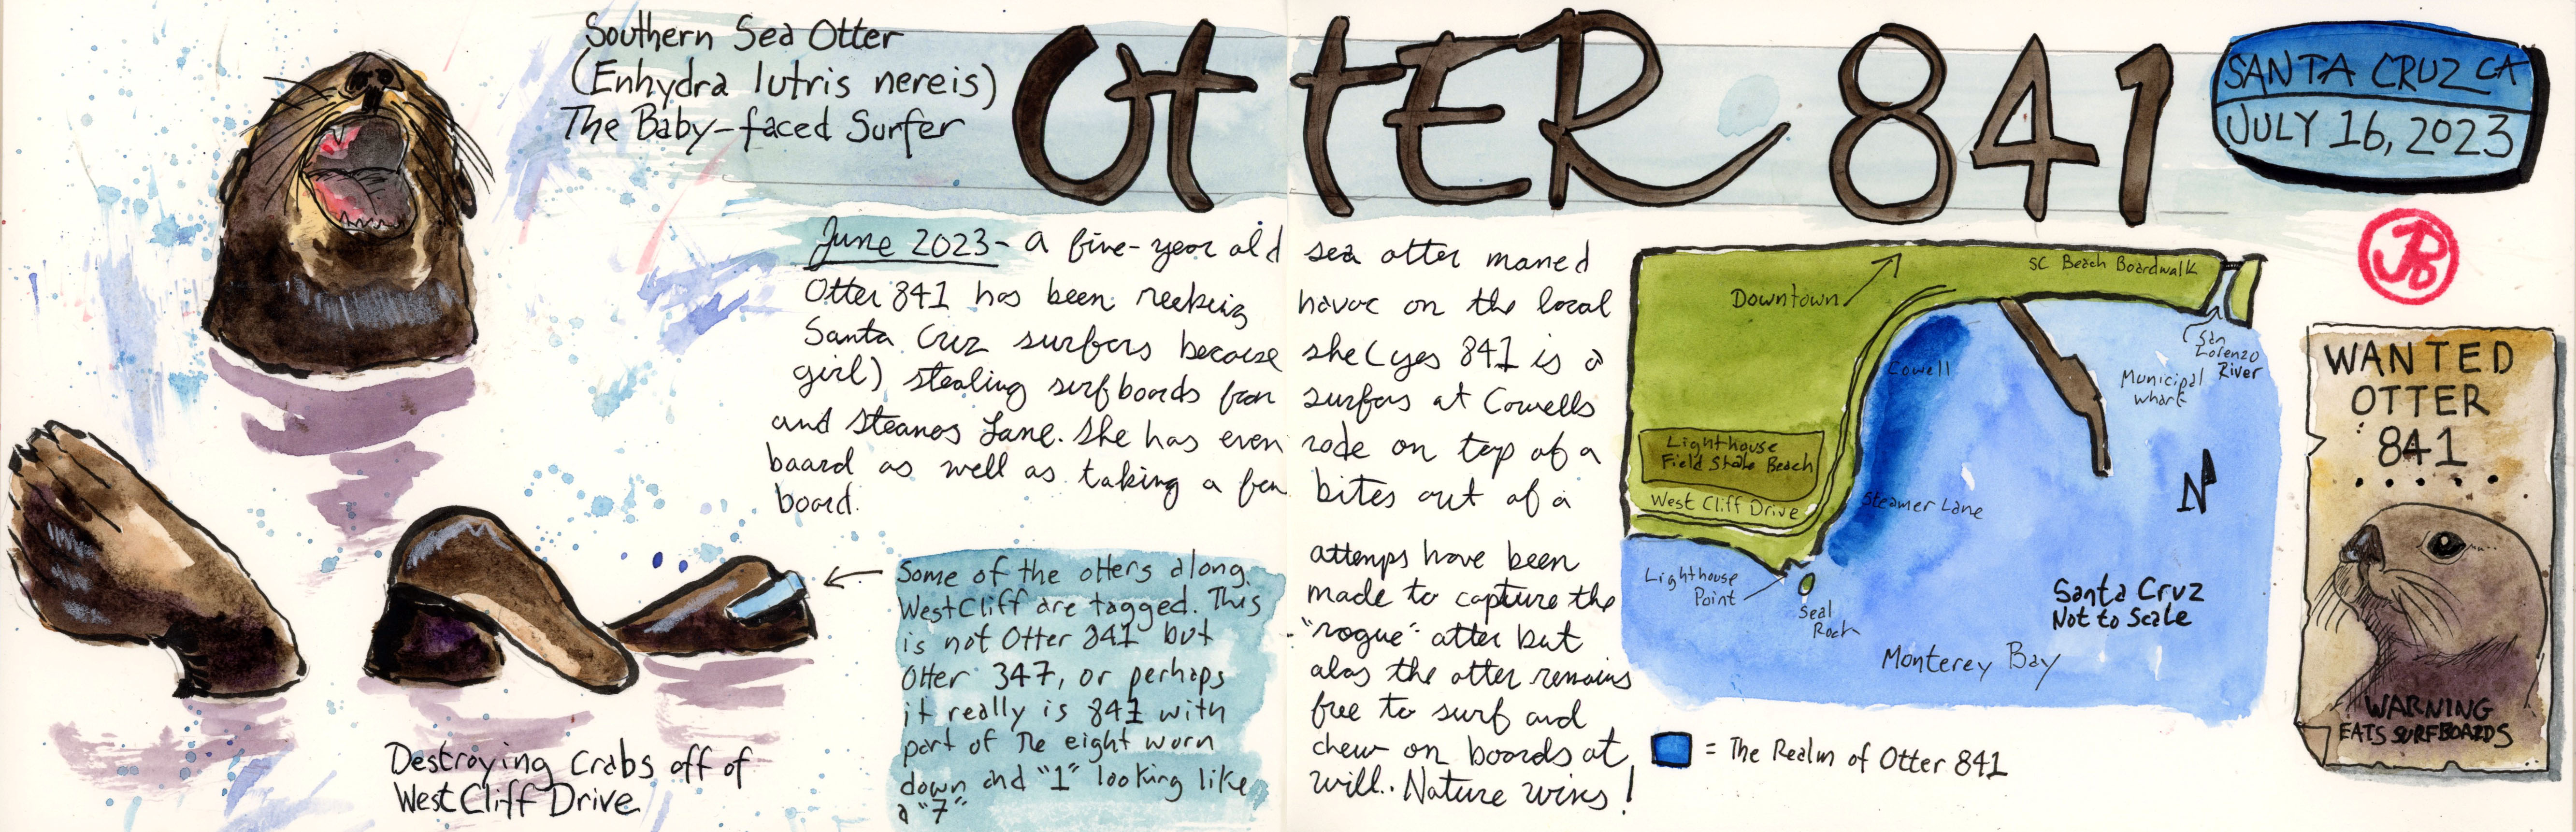 Southern Sea Otter
(Enhydra lutris nereis)
The Baby-faced Surfer
OttER 841
SANTA CRUZ CA
JULY 16, 2023
June 2023- a five-year old sea otter named
Otter 841 has been reeking havoc on the local
Santa Cruz surfers because she (yes 841 is a
girl) stealing surfboards from surfers at Cowells
and Steamos Lane. She has even rode on top of a
board as well as taking a few bites out of a
board.
attemps have been
made to capture the
"rogue" otter but
alas the otter remains
free to surf and
chew on boards at
will.. Nature wins!
Some of the otters along
West Cliff are tagged. This
is not Otter 841 but
Otter 347, or perhaps
it really is 841 with
part of the eight worn
down and "1" looking like
a "7"
Destroying Crabs off of
West Cliff Drive
SC Beach Boardwalk
Downtown
San
Lorenzo
River
Cowell
Municipal
Wharf
Lighthouse
Field State Beach
West Cliff Drive
Steamer Lane
N
Lighthouse
Point
Seal
Rock
Santa Cruz
Not to Scale
Monterey Bay
= The Realm of Otter 841
WANTED
OTTER
841
WARNING
EATS SURFBOARDS